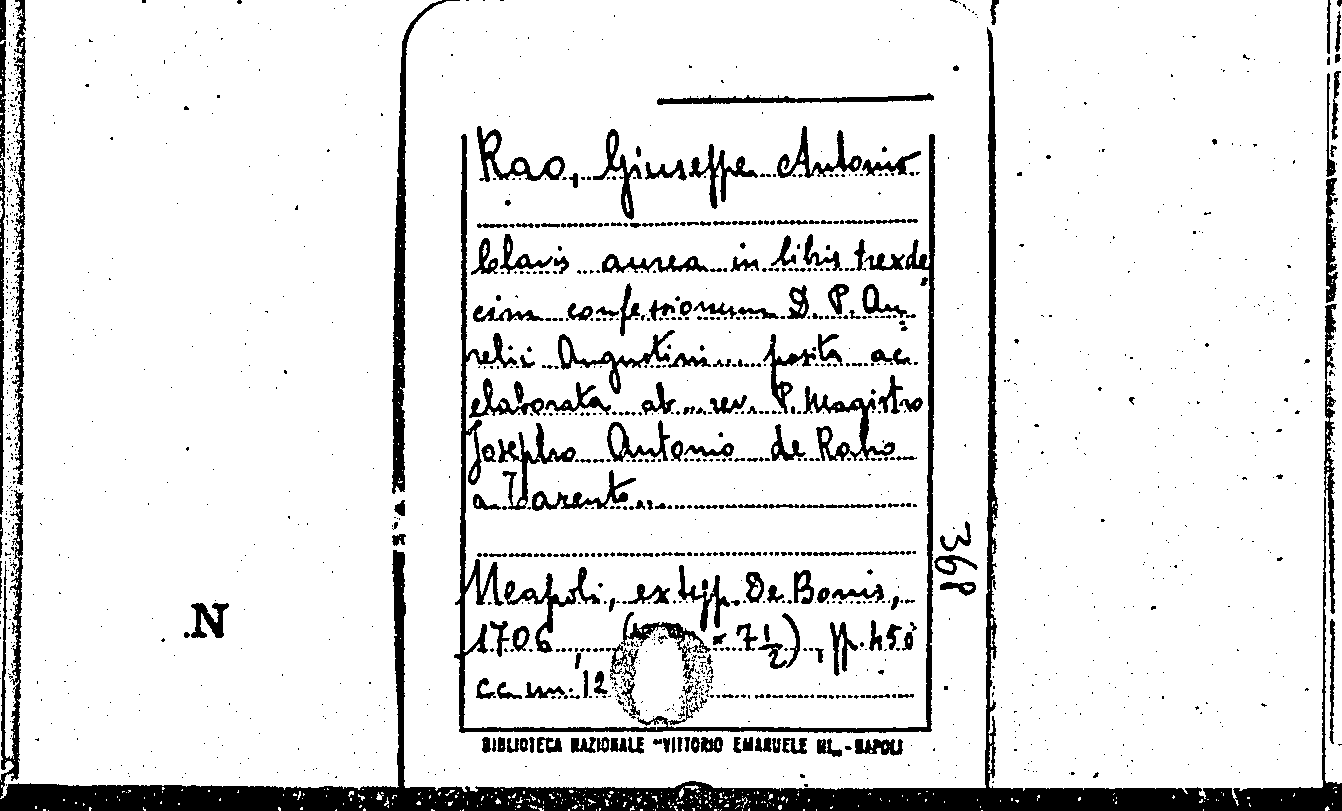 Rao, Giuseppe Antonio
Clavis aurea in libris trexde
cim confessionum D. P. Au=
relii Augustini... posita ac
elaborata ab... rev. P. Magistro
Josepho Antonio de Raho
a Tarento..
Neapoli, ex typ. De Bonis,
1706, ( × 7 1/2), pp. 450
cc. nn. 12
368
.N
BIBLIOTECA NAZIONALE "VITTORIO EMANUELE III„ - NAPOLI